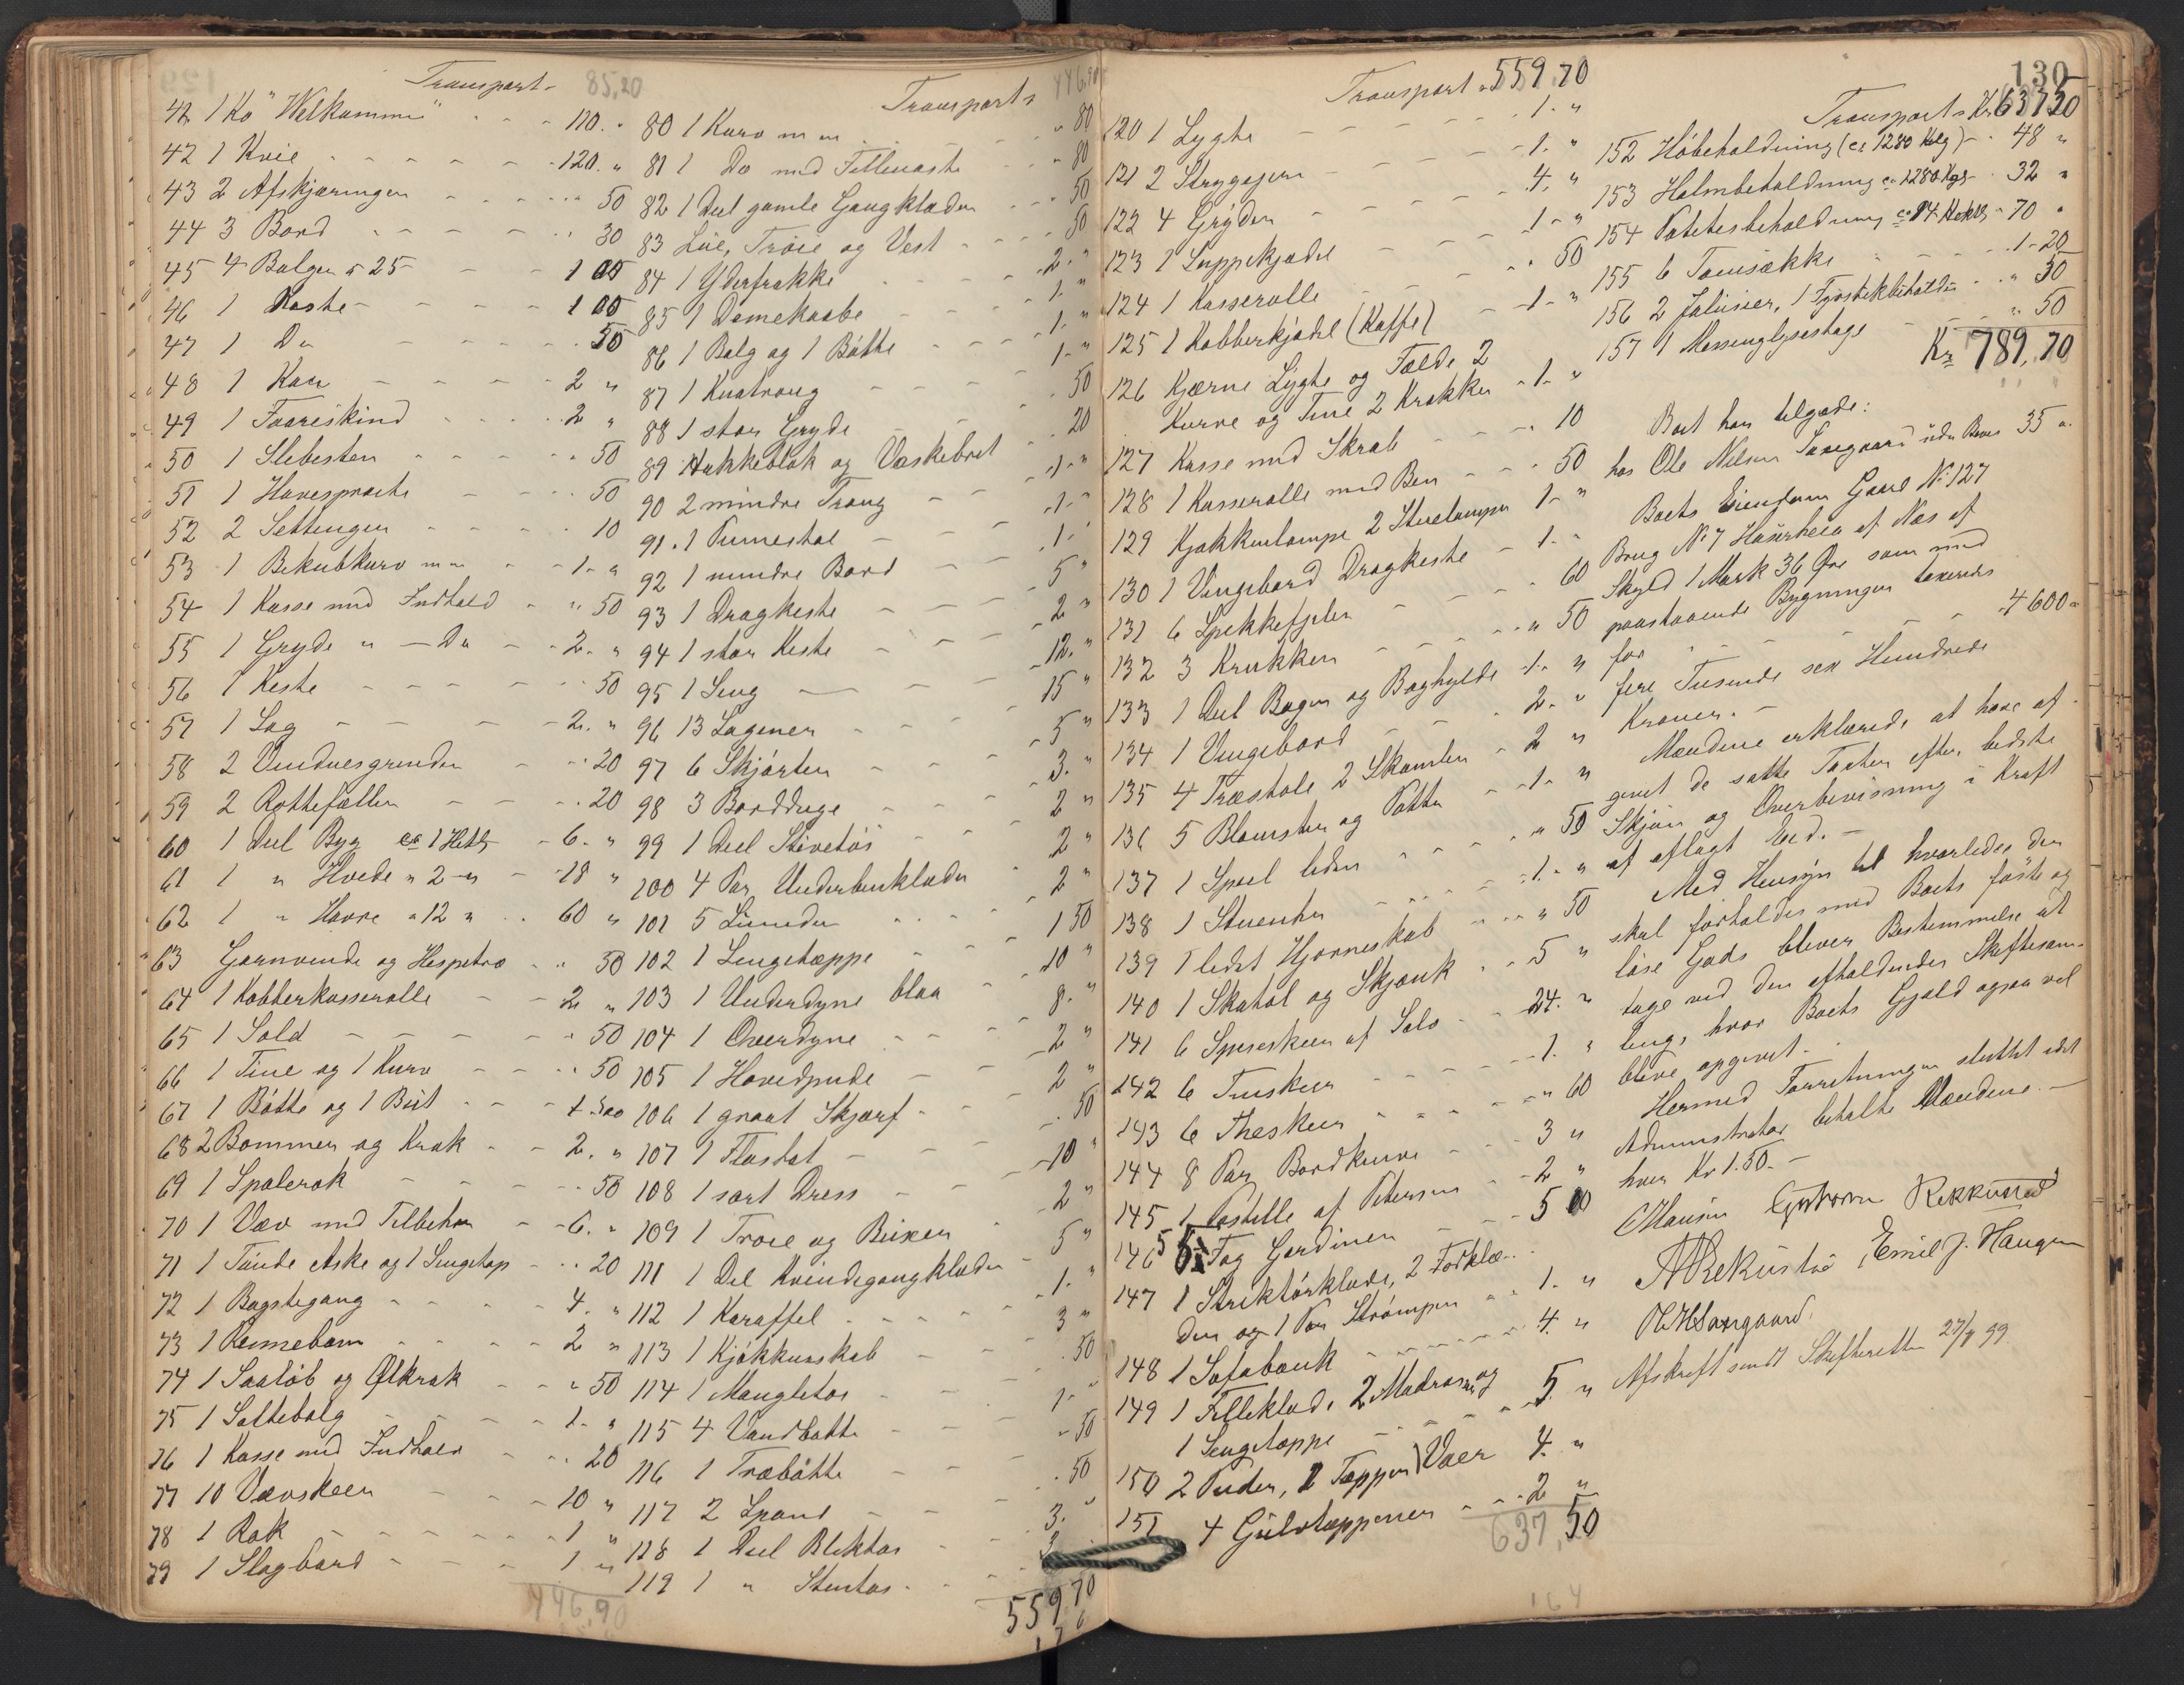 Transport - 85,20
42 1 Ko "Welkommen" - - 110. "
42 1 Kvie - - - 120. "
43 2 Afskjæringer - - - " 50
44 3 Bord - - - " 30
45 4 Balger à 25 - - 1 00
46 1 Kaste - - - 1 00
47 1 Do - - - 50
48 1 Kar - - - 2 "
49 1 Faareskind - - 2 "
50 1 Slibesten - - - " 50
51 1 Havesprøite - - " 50
52 2 Settinger - - - 10
53 1 Bikubkurv m m - 1 - "
54 1 Kasse med Indhold - " 50
55 1 Gryde " - Do - 2. "
56 1 Kiste - - - " 50
57 1 Sag - - - 2. "
58 2 Vinduesgrinder - " 20
59 2 Rottefæller - - " 20
60 1 Deel Byg ca 1 Hektl - 6. "
61 1 " Hvede " 2 " - 18 "
62 1 " Havre " 12 " - 60 "
63 Garnvinde og Hespetræ - " 50
64 1 Kobberkasserolle - - 2 "
65 1 Sold - - - " 50
66 1 Tine og 1 Kurv - - " 50
67 1 Bøtte og 1 Büt - -
68 2 Bommer og Krak - - 2. "
69 1 Spolerok - - - 50
70 1 Væv med Tilbehør - 6. "
71 1 Tønde Aske og 1 Sengetøp - " 20
72 1 Bogstegang - - - 4. "
73 1 Rennebom - - - 2 "
74 1 Saaløb og Ølkrak - - " 50
75 1 Saltebalg - - - 1. "
76 1 Kasse med Indhold - " 20
77 10 Vævskeer - - 10 "
78 1 Rok - - - 1 "
79 1 Slagbord - - - 1 "
496,90
Transport 446,90
80 1 Kurv m m - - " 80
81 1 Do med Filleraste - " 80
82 1 Deel gamle Gangklæder - 50
83 Lüe, Trøie og Vest - - 50
84 1 Yderfrakke - - 2. "
85 1 Damekaabe - - 1. "
86 1 Balg og 1 Bøtte - - 1. "
87 1 Knatraug - - 1. "
88 1 stor Gryde - - 50
89 Hakkeblok og Vaskebret - 20
90 2 mindre Traug - - 1. "
91 1 Pinnestol - - 1. "
92 1 mindre Bord - - 1.
93 1 Dragkiste - - 5 "
94 1 stor Kiste - - 2 "
95 1 Seng - - 12. "
96 13 Lagener - - 15 "
97 6 Skjørter - - 5 "
98 3 Borddüge - - 3. "
99 1 Deel Stivetøi - - 2 "
100 4 Par Underbenklæder - 2 "
101 5 Linneder - - 2 "
102 1 Sengetæppe - - 1 50
103 1 Underdyne blaa - 10 "
104 1 Overdyne - - 8. "
105 1 Hovedpude - - 2 "
106 1 graat Skjærf - - 2 "
107 1 Flosbat - - 50
108 1 sort Dress - - 10 "
109 1 Trøie og Büxer - 2 "
111 1 Del Kvindegangklæder - 5 "
112 1 Karaffel - - 1. "
113 1 Kjøkkenskab - - 3 "
114 1 Mangletøi - - 50
115 4 Vandbøtte - - 1. "
116 1 Træbøtte - - " 50
117 2 Spand - - 50
118 1 Deel Bliktøi - - 3. "
119 1 " Stentøi - - 3
559,70
Transport " 559,70
120 1 Lygte - - - 1. "
121 2 Strygejern - - - 1. "
122 4 Gryder - - - 4. "
123 1 Suppekjedel - - - 1 - "
124 1 Kasserolle - - - " 50
125 1 Kobberkjedel (Kaffe) - 1 - "
126 Kjærne Lygte og Fælde 2
Kurve og Tine 2 Krakker - 1. "
127 Kasse med Skrab - - - 10
128 1 Kasserolle med Ben - - 50
129 Kjøkkenlampe 2 Stuelamper 1. "
130 1 Vingebord Dragkiste - 1. "
131 6 Spekkefjeler - - - 60
132 3 Krükker - - - " 50
133 1 Deel Bøger og Boghylde 1. "
134 1 Vingebord - - 2. "
135 4 Træstole 2 Skamler - 2 "
136 5 Blomster og Potter - 1. "
137 1 Speil liden - - - " 50
138 1 Stueuhr - - - 1. "
139 1 lidet Hjørneskab - - " 50
140 1 Skatol og Skjænk - - 5 "
141 6 Spiseskeer af Sølv - - 24. "
142 6 Tinskeer - - - 1. "
143 6 Theskeer - - - " 60
144 8 Par Bordknive - - 3 "
145 1 Postille af Petersen - 2 "
146 5 Fag Gardiner - - 5 00
147 1 Striktørklæde, 2 Forklæ-
der og 1 Par Strømper - - 1. "
148 1 Sofabænk - - - 4. "
149 1 Filleklæde 2 Madrasser og
1 Sengetæppe - - - 5. "
150 2 Puder, 2 Tæpper) Vaer 4. "
151 4 Gülvtæpperier - - - 2 "
637,50
130
Transport Kr 637,50
152 Høbeholdning (ca 1280 Klg) - 48 "
153 Halmbeholdning ca 1280 Kgs - 32 "
154 Potetesbeholdning ca 14 Hektl - 70 "
155 6 Tomsække - - - 1 - 20
156 2 Jalüsier, 1 Fyrstikbeholder - - " 50
157 1 Messinglysestage - - - " 50
Kr 789,70
Boet har tilgode:
hos Ole Nilsen Saxegaard uden Bevis 35 "
Boets Eiendom Gaard No 127
Brug No 7 Haüerheia af Næs af
Skyld 1 Mark 36 Øre som med
paastaaende Bygninger taxeredes
for - - - - 4600 -
fire Tusinde sex Hundrede
Kroner. -
Mændene erklærede at have af-
givet de satte Taxter efter bedste
Skjøn og Overbevisning i Kraft
af aflagt Eed. -
Med Hensyn til hvorledes der
skal forholdes med Boets faste og
løse Gods blever Bestemmelse at
tage ved den afholdendes Skiftesam-
ling, hvor Boets Gjæld ogsaa vil
blive opgivet. -
Hermed Forretningen sluttet idet
Administrator betalte Mændene
hver Kr 1.50. -
CHansen Guttorm Rekkustad
ARekustad, Emil J. Haugen
NHSaxegaard.
Afskrift sendt Skifteretten 27/4 99
164